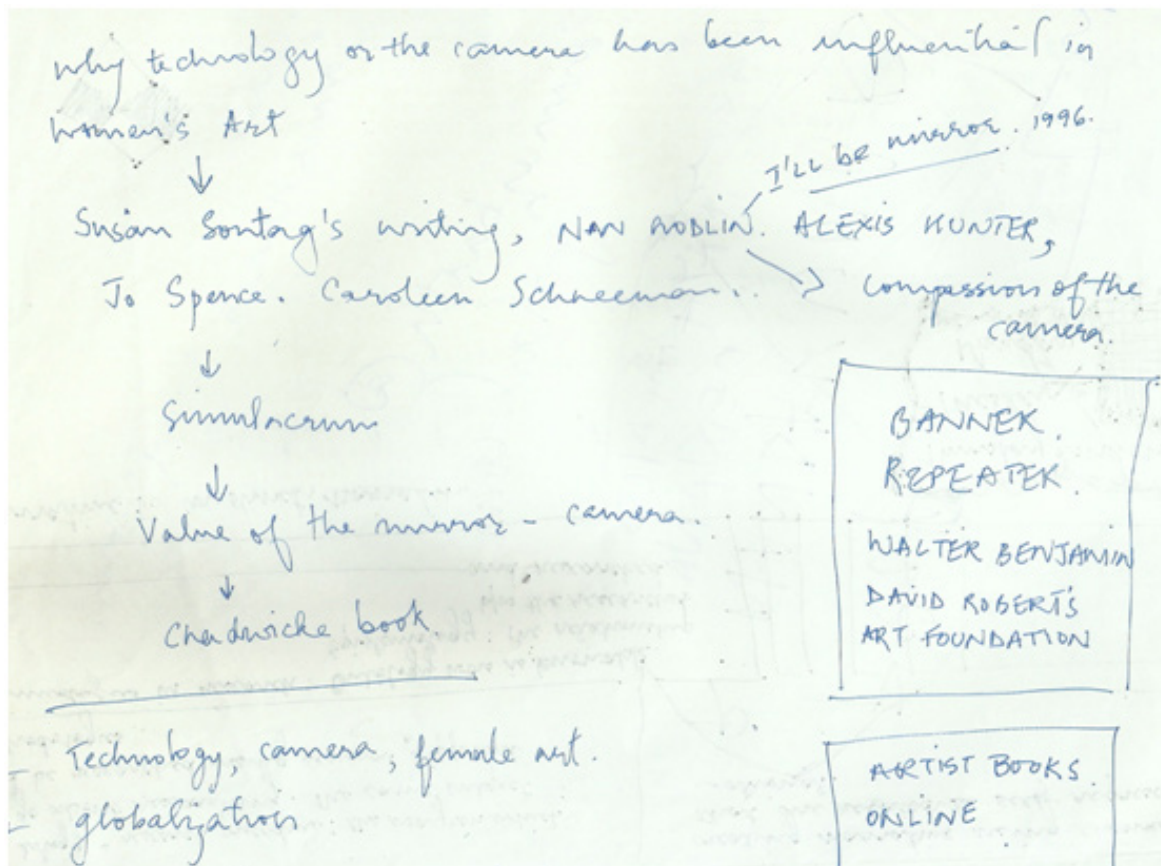 why technology or the camera has been influential in
women's Art
↓
I'LL be mirror. 1996.
Susan Sontag's writing, NAN GODLIN. ALEXIS HUNTER,
Jo Spence. Caroleen Schneeman..
compassion of the
camera.
↓
Simulacrum
↓
Value of the mirror - camera.
↓
Chadwicke book
BANNER
REPEATER
WALTER BENJAMIN
DAVID ROBERT'S
ART FOUNDATION
Technology, camera, female art.
globalization
ARTIST BOOKS
ONLINE